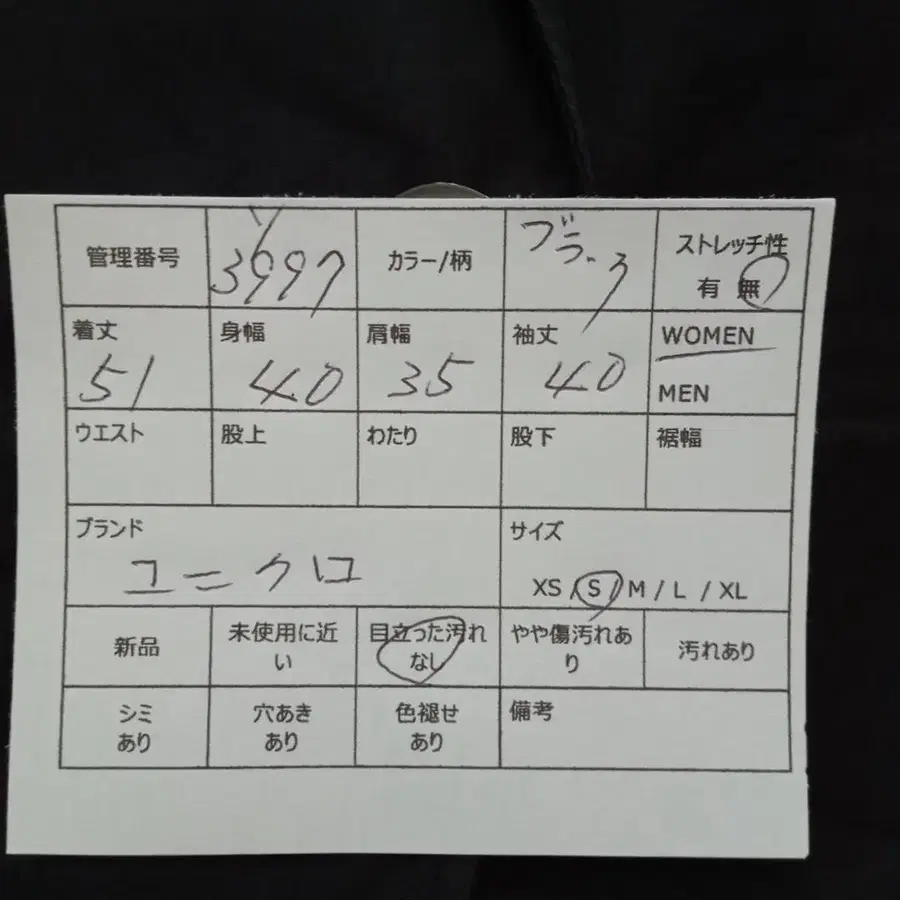 管理番号 Y3997 カラー/柄 ブラック ストレッチ性
有 無
着丈 身幅 肩幅 袖丈 WOMEN
51 40 35 40 MEN
ウエスト 股上 わたり 股下 裾幅
ブランド サイズ
ユニクロ XS / S / M / L / XL
新品 未使用に近い 目立った汚れなし やや傷汚れあり 汚れあり
シミあり 穴あきあり 色褪せあり 備考